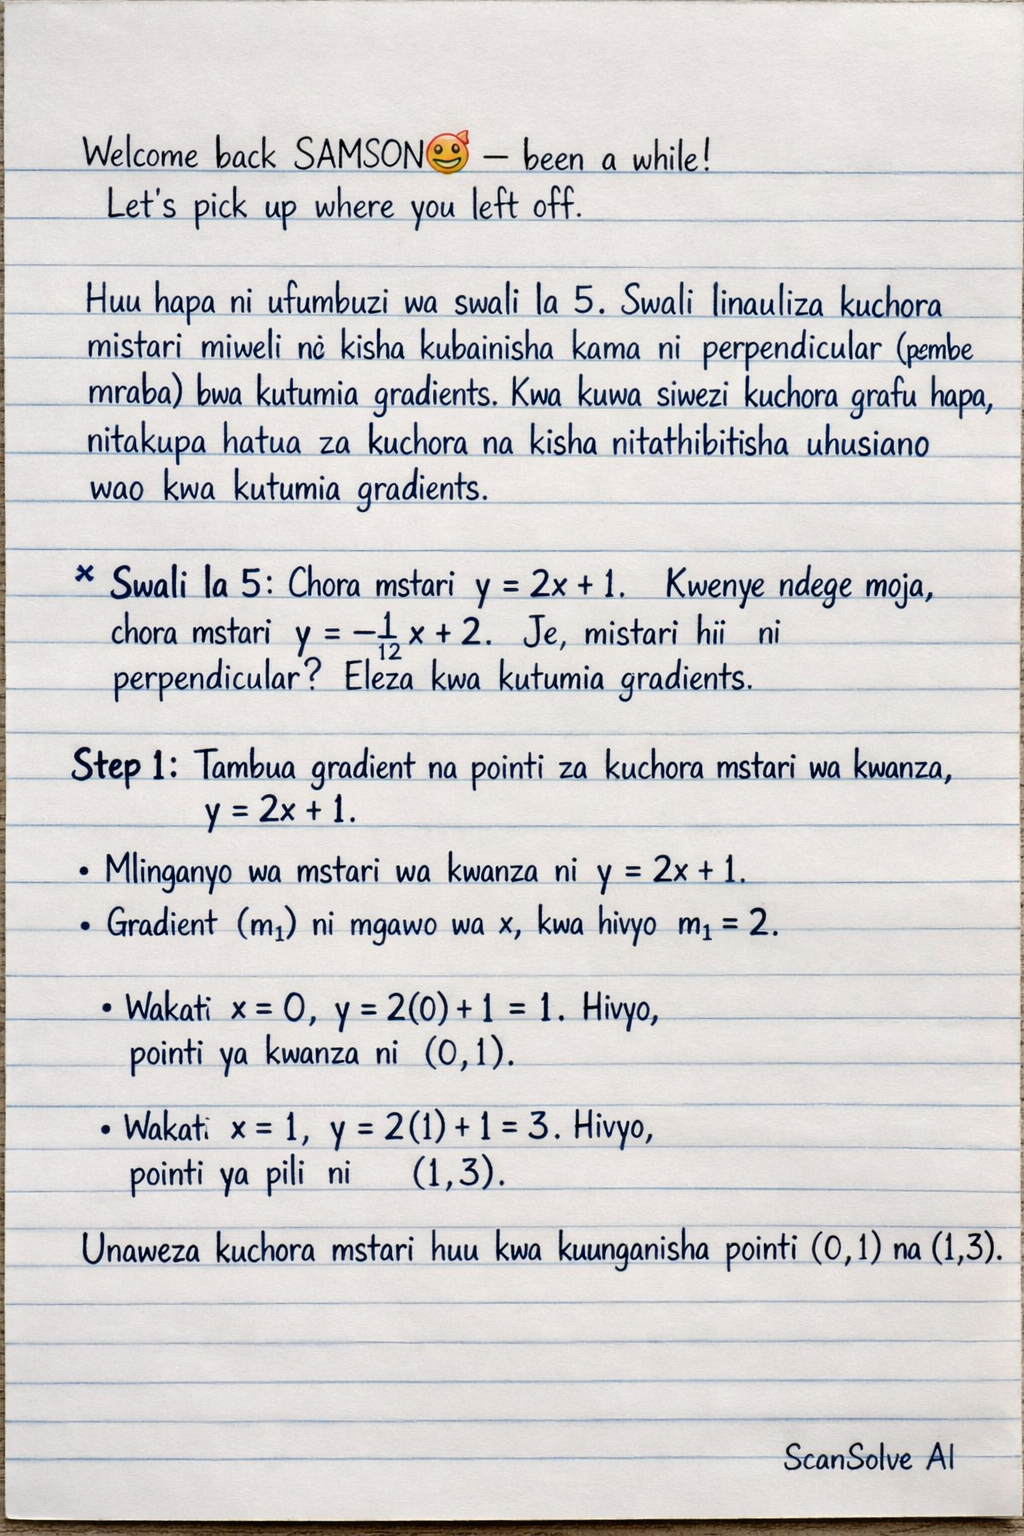 Welcome back SAMSON😅 – been a while!
Let's pick up where you left off.
Huu hapa ni ufumbuzi wa swali la 5. Swali linauliza kuchora
mistari miweli nċ kisha kubainisha kama ni perpendicular (pembe
mraba) bwa kutumia gradients. Kwa kuwa siwezi kuchora grafu hapa,
nitakupa hatua za kuchora na kisha nitathibitisha uhusiano
wao kwa kutumia gradients.
× Swali la 5: Chora mstari y = 2x + 1. Kwenye ndege moja,
chora mstari y = –1/12 x + 2. Je, mistari hii ni
perpendicular? Eleza kwa kutumia gradients.
Step 1: Tambua gradient na pointi za kuchora mstari wa kwanza,
y = 2x + 1.
• Mlinganyo wa mstari wa kwanza ni y = 2x + 1.
• Gradient (m₁) ni mgawo wa x, kwa hivyo m₁ = 2.
• Wakati x = 0, y = 2(0) + 1 = 1. Hivyo,
pointi ya kwanza ni (0,1).
• Wakati x = 1, y = 2(1) + 1 = 3. Hivyo,
pointi ya pili ni (1,3).
Unaweza kuchora mstari huu kwa kuunganisha pointi (0,1) na (1,3).
ScanSolve AI